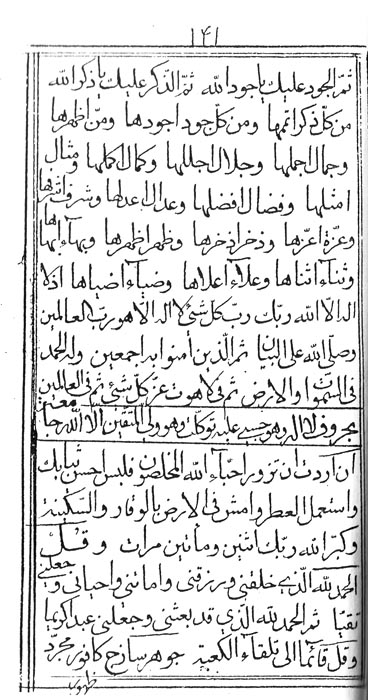 ١٤١
ثمّ الجود عليك يا جود الله ثمّ الذّكر عليك يا ذكر الله
من كلّ ذكر اتمّها ومن كلّ جود اجودها ومن اظهرها
وجمال اجملها وجلال اجللها وكمال اكملها ومثال
امثلها وفضال افضلها وعدال اعدلها وشرف
وعزّة اعزّها وذخر اذخرها وظهر اظهرها وبهآء ابهاها
وثنآء اثناها وعلآء اعلاها وضيآء اضياها اذ لا
اله الّا الله ربّك ربّ كلّ شئ لا اله الّا هو ربّ العالمين
وصلّى الله على البيان ثمّ الّذين آمنوا به اجمعين وله الحمد
فى السّموات والارض ثمّ فى لاهوت عزّ كلّ شئ ثمّ فى العالمين
لا اله الّا هو حسبى عليه توكّلت وهو ولىّ المتّقين الا الله
ان اردت ان تزور احبّآء الله المخلصون فلبس احسن ثيابك
واستعمل العطر وامش فى الارض بالوقار والسّكينة
وكبّر الله ربّك اثنين ومأتين مرات وقل
الحمد لله الّذى خلقنى ورزقنى واماتنى واحيانى وجعلنى
تقيّا ثمّ الحمد لله الّذى قد بعثنى وجعلنى عبدا كريما
وقل قآئما الى تلقآء الكعبة جوهر ساذج كافور مجرّد
ظهور